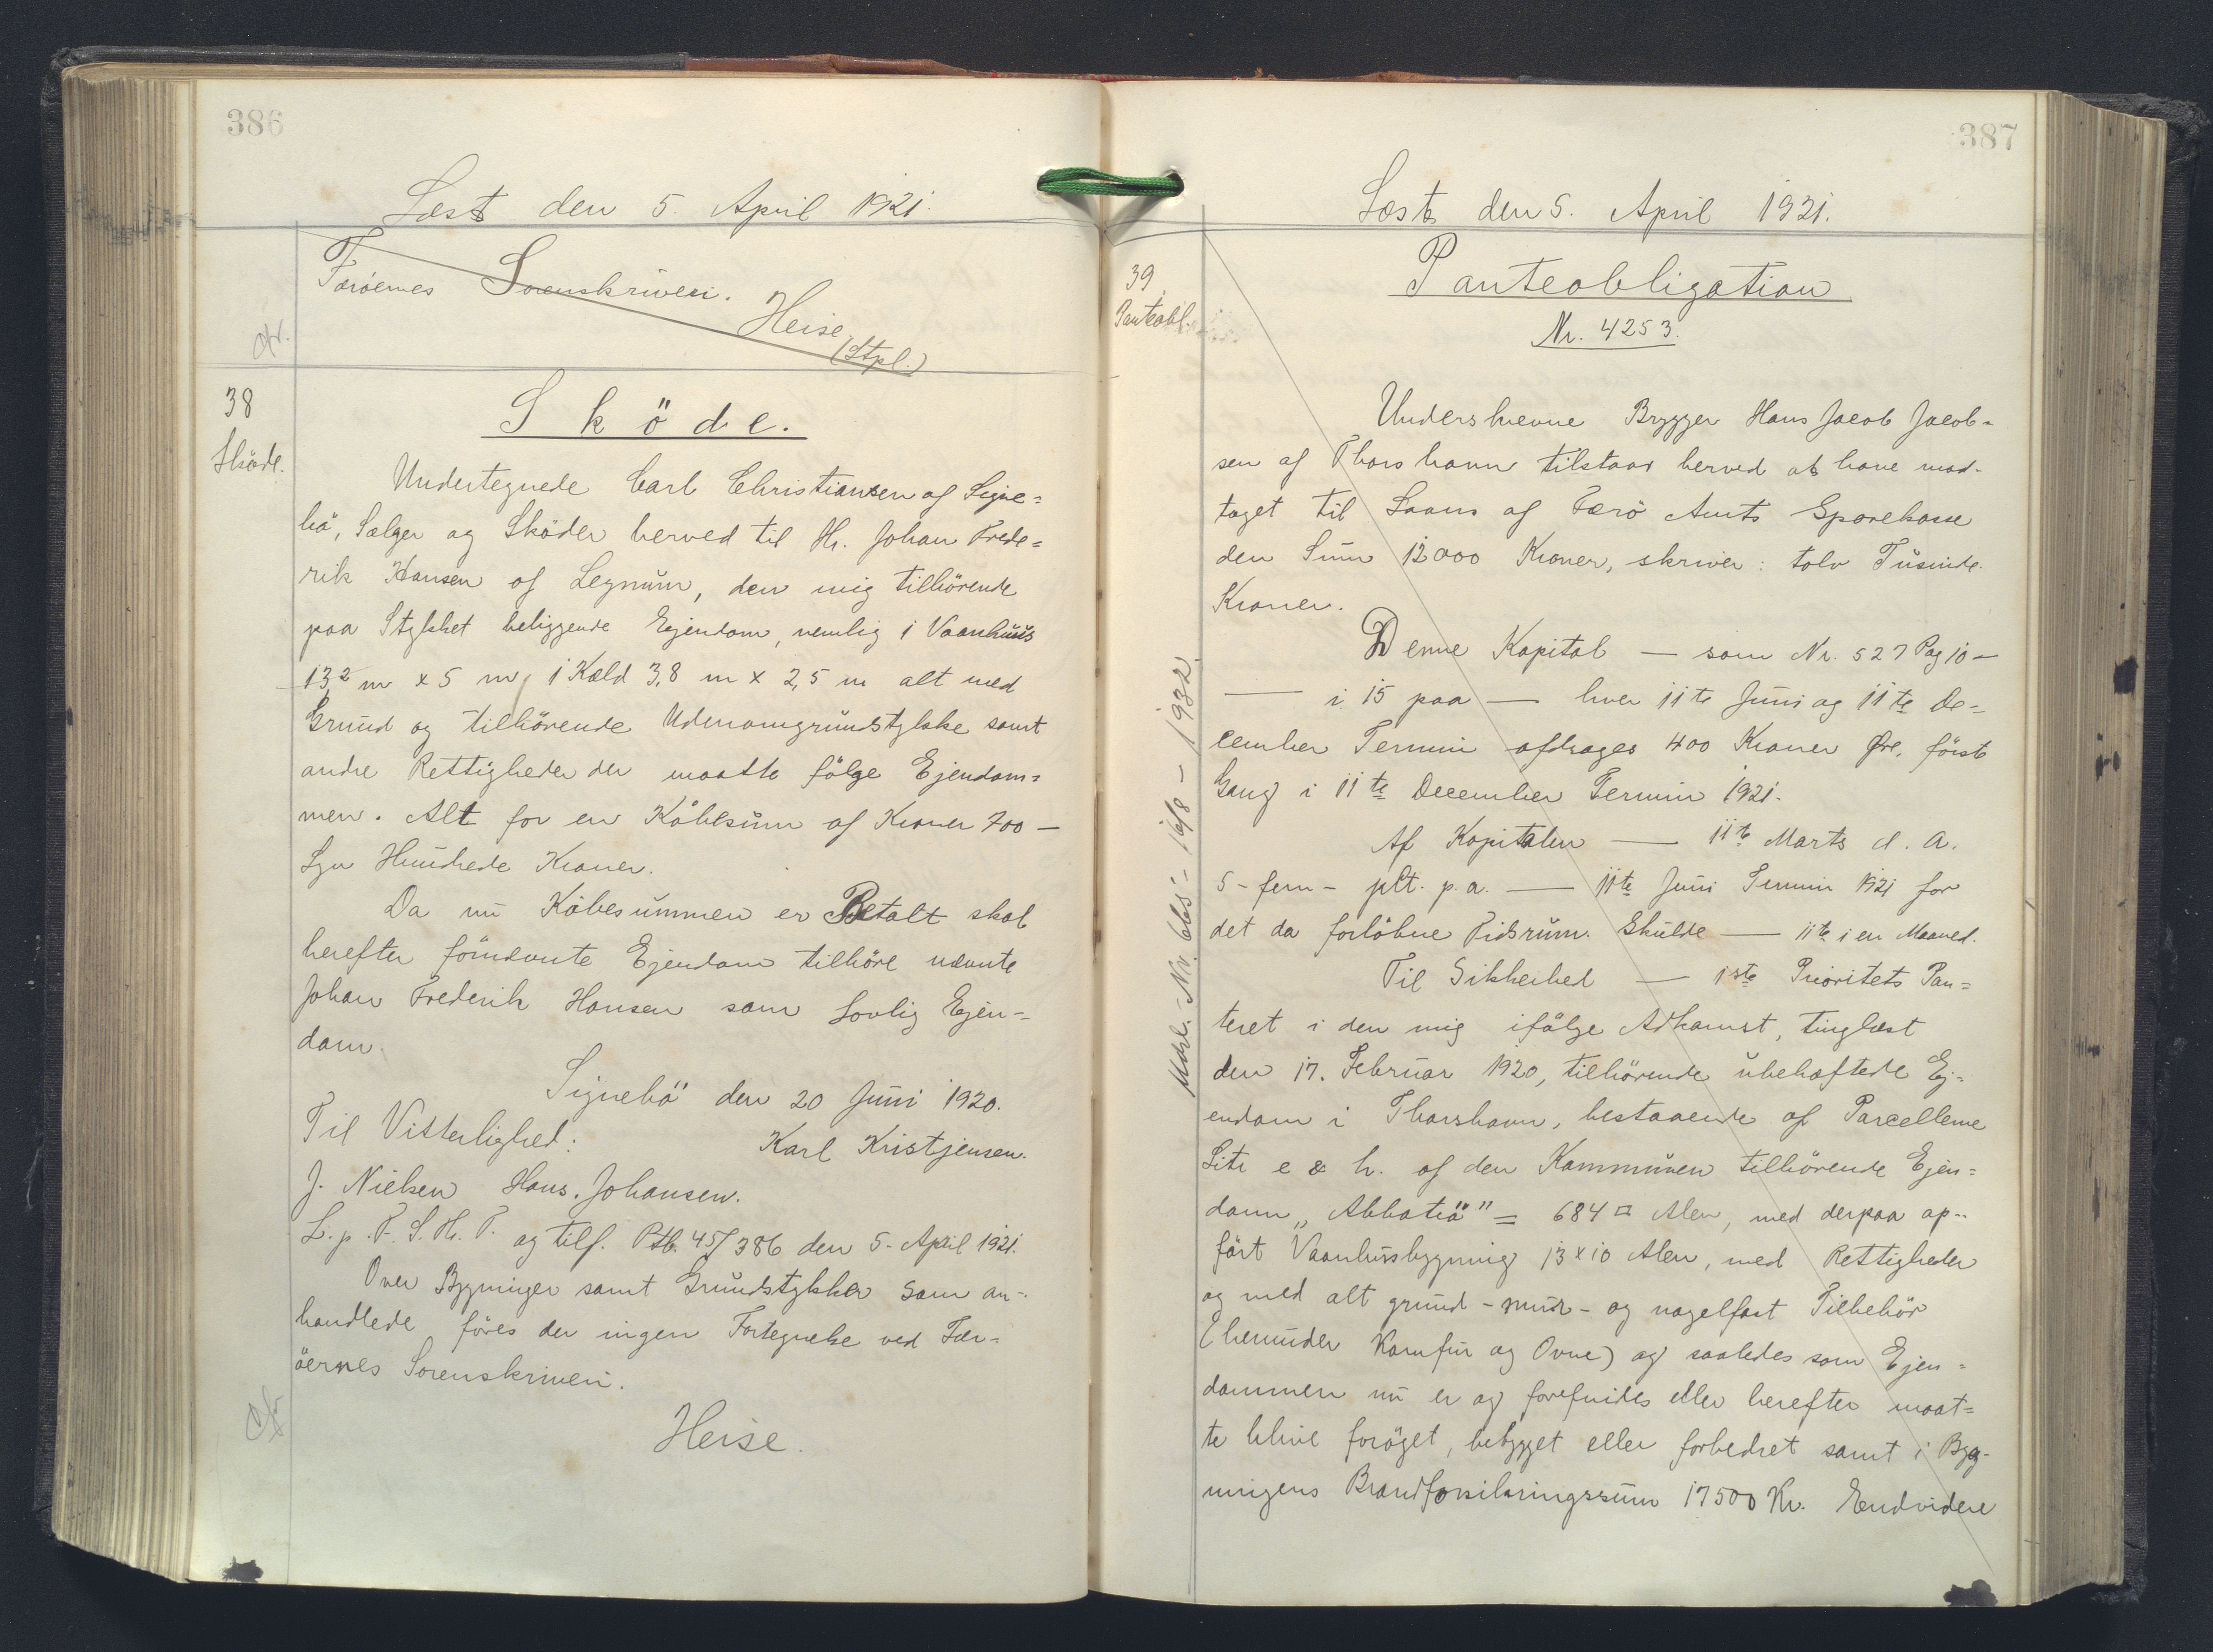 386
Læst den 5. April 1921.
Færöernes Sorenskriveri.
Heise
(Stpl.)
cfr.
38
Sköde.
Sköde.
Undertegnede Carl Christiansen af Signe=
bö, Sælger og Sköder herved til Hr. Johan Frede=
rik Hansen af Legnum, den mig tilhörende
paa Stykket beliggende Ejendom, nemlig 1 Vaanhuus
13,2 m x 5 m, 1 Kæld 3,8 m x 2,5 m alt med
Grund og tilhörende Udenomgrundstykke samt
andre Rettigheder der maatte fölge Ejendom=
men. Alt for en Köbesum af Kroner 700 —
Syv Hundrede Kroner.
Da nu Köbesummen er Betalt skal
herefter förnævnte Ejendom tilhöre nævnte
Johan Frederik Hansen som Lovlig Ejen-
dom.
Signebö den 20 Juni 1920.
Til Vitterlighed:
Karl Kristjensen.
J. Nielsen Hans. Johansen.
L. p. F. S. H. T. og tilf. Ptb. 45/386 den 5. April 1921.
Over Bygninger samt Grundstykker som an-
handlede föres der ingen Fortegnelse ved Fær=
öernes Sorenskriveri.
Heise.
Cfr
387
Læst den 5. April 1921.
39
Panteobl.
Panteobligation
Nr. 4253.
Underskrevne Brygger Hans Jacob Jacob-
sen af Thorshavn tilstaar herved at have mod-
taget til Laans af Færö Amts Sparekasse
den Sum 12000 Kroner, skriver: tolv Tusinde
Kroner.
Denne Kapital — som Nr. 527 Pag 10 —
— i 15 paa — hver 11te Juni og 11te De-
cember Termin afdrages 400 Kroner Öre, först
Gang i 11te December Termin 1921.
Af Kapitalen — 11te Marts d. A.
5 - fem - pCt. p. a. — 11te Juni Termin 1921 for
det da forlöbne Tidsrum. Skulde — 11te i en Maaned.
Til Sikkerhed — 1ste Prioritets Pan=
teret i den mig ifölge Adkomst, tinglæst
den 17. Februar 1920, tilhörende ubehæftede Ej-
endom i Thorshavn, bestaaende af Parcellerne
Litr e & h. af den Kommunen tilhörende Ejen=
dom „Abbatiö" = 684 □ Alen, med derpaa op-
fört Vaanhusbygning 13 x 10 Alen, med Rettigheder
og med alt grund - mur - og nagelfast Tilbehör
(herunder Komfur og Ovne) og saaledes som Ejen=
dommen nu er og forefindes eller herefter maat=
te blive foröget, bebygget eller forbedret samt i Byg-
ningens Brandforsikringssum 17500 Kr. Endvidere
Udsl. Nr. 665 - 16/8 - 1932.